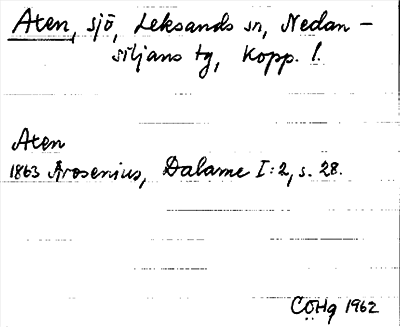 Aten, sjö, Leksands sn, Nedan-
siljans tg, Kopp. l.
Aten
1863 Arosenius, Dalarne I:2, s. 28.
CÖHg 1962